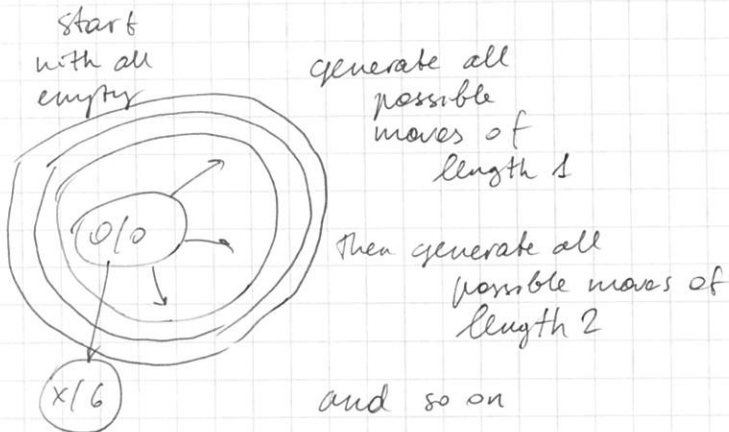 start
with all
empty
generate all
possible
moves of
length 1
0/0
then generate all
possible moves of
length 2
x/6
and so on